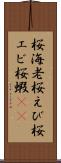 桜海老桜えび桜
エビ桜蝦